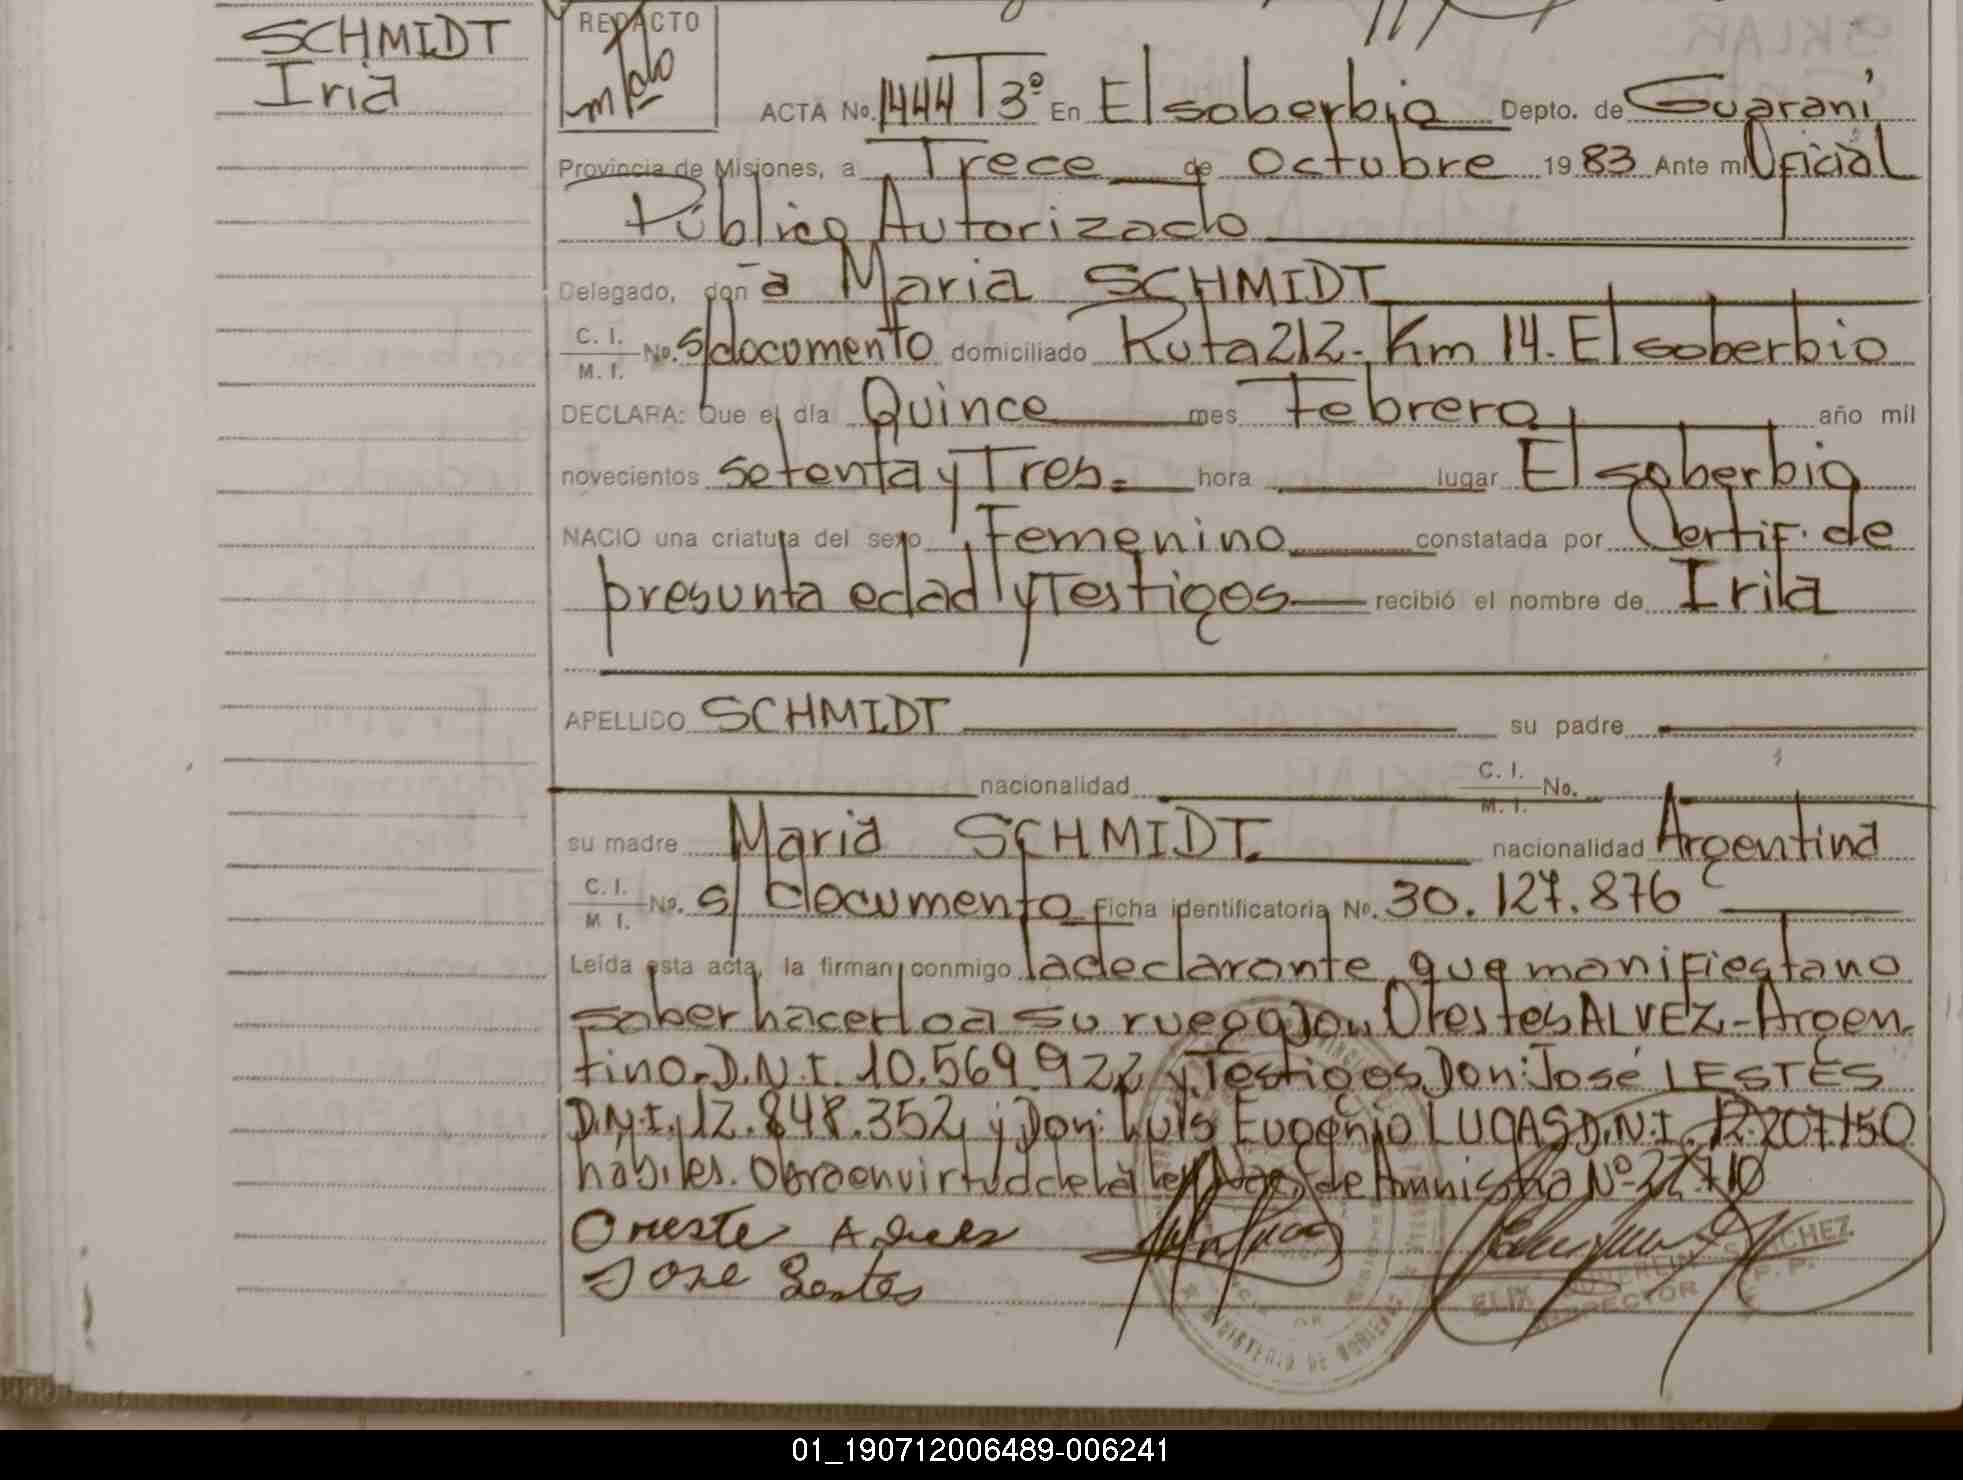 SCHMIDT
Iria
REDACTO
ACTA No. 1444 T 3º En El soberbio Depto. de Guaraní
Provincia de Misiones, a Trece de Octubre 1983 Ante mi Oficial
Público Autorizado
Delegado, doña Maria SCHMIDT
C. I.
M. I. No. s/documento domiciliado Ruta 212. Km 14. El soberbio
DECLARA: Que el día Quince mes Febrero año mil
novecientos setenta y Tres. hora lugar El soberbio
NACIO una criatura del sexo Femenino constatada por Certif. de
presunta edad y Testigos recibió el nombre de Iria
APELLIDO SCHMIDT su padre
nacionalidad C. I.
M. I. No.
su madre Maria SCHMIDT. nacionalidad Argentina
C. I.
M. I. No. s/ documento Ficha identificatoria No. 30.127.876
Leída esta acta, la firman conmigo la declarante que manifiesta no
saber hacerlo a su ruego Don Orestes ALVEZ - Argen
tino. D.N.I. 10.569.922 y Testigos Don: José LESTES
D.N.I. 12.848.352 y Don: Luis Eugenio LUCAS D.N.I. 12.207.150
hábiles. Obra en virtud de la ley de Amnistia Nº
Oreste
Jose Lestes
SANCHEZ
MINISTERIO DE GOBIERNO
01_190712006489-006241